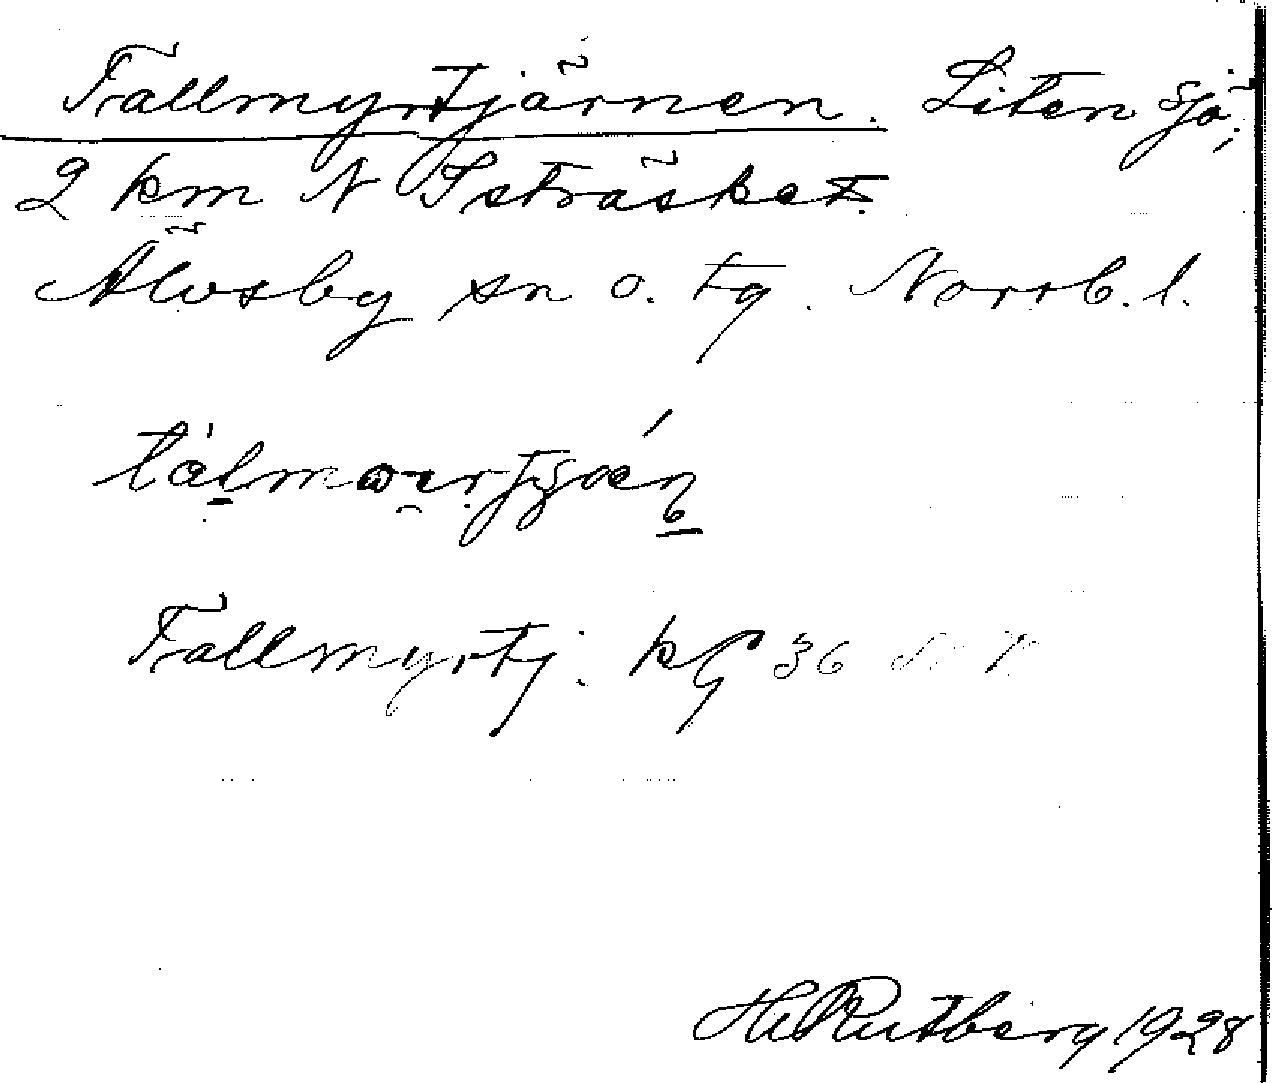 Fallmyrtjärnen. Liten sjö,
2 km N Isträsket.
Älvsby sn o. tg. Norrb. l.
Fallmyrtj. kg 36
H. Rutberg 1928